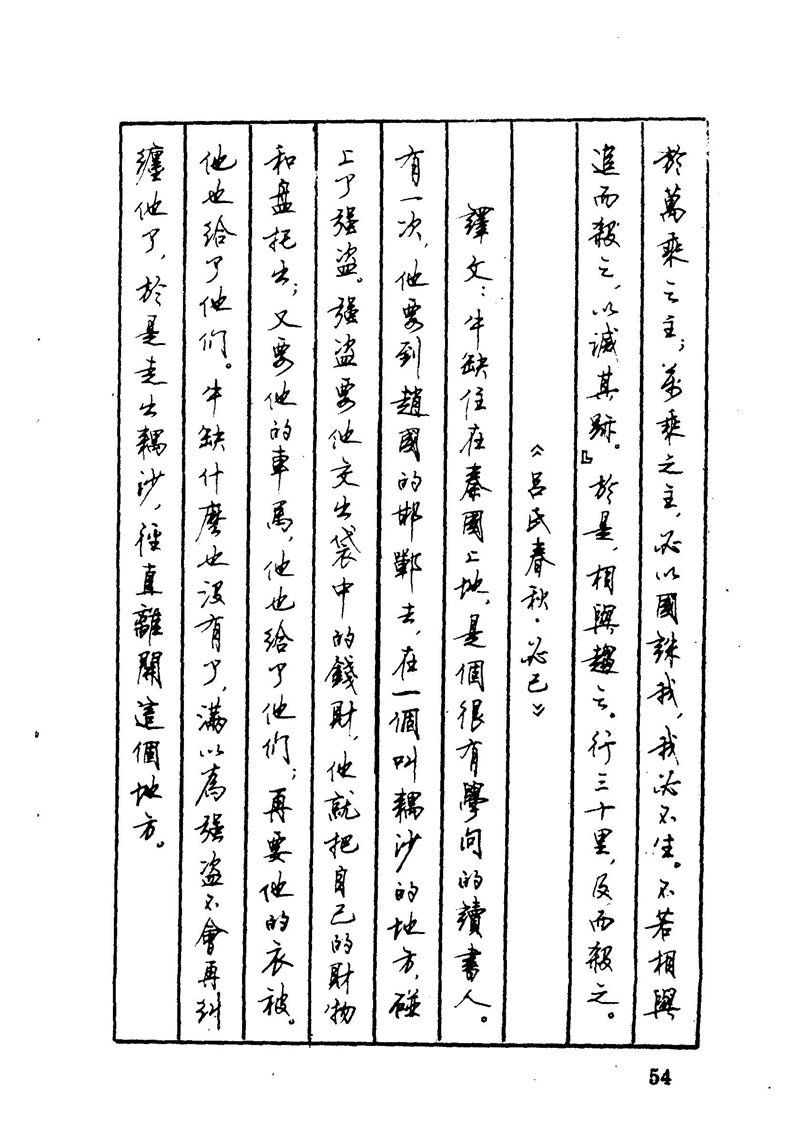 於萬乘之主；萬乘之主，必以國誅我，我必不生。不若相與
追而殺之，以滅其跡。』於是，相與趨之。行三十里，及而殺之。
《呂氏春秋·必己》
譯文：牛缺住在秦國上地，是個很有學问的讀書人。
有一次，他要到趙國的邯鄲去，在一個叫耦沙的地方，碰
上了强盗。强盗要他交出袋中的錢財，他就把自己的財物
和盘托出；又要他的車馬，他也给了他们；再要他的衣被。
他也给了他们。牛缺什麽也没有了，滿以爲强盗不會再糾
纏他了，於是走出耦沙，徑直離開這個地方。
54